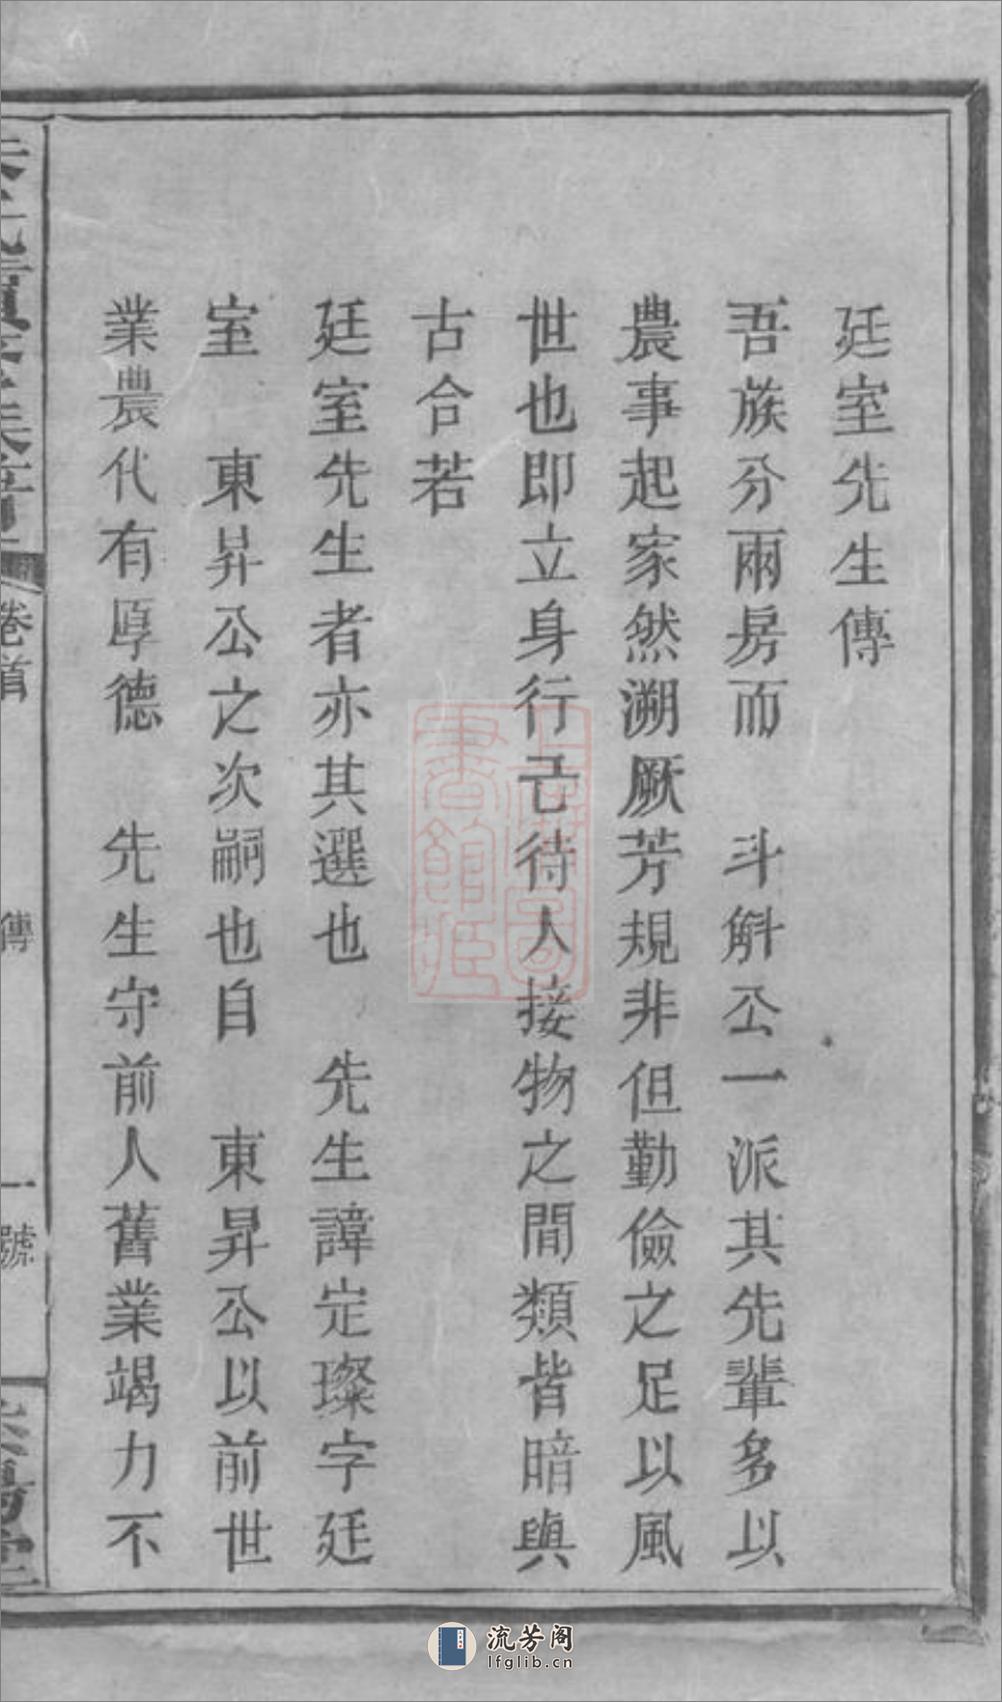 廷室先生傳
吾族分兩房而　斗斛公一派其先輩多以
農事起家然溯厥芳規非但勤儉之足以風
世也即立身行己待人接物之間類皆暗與
古合若
廷室先生者亦其選也　先生諱定璨字廷
室　東昇公之次嗣也自　東昇公以前世
業農代有厚德　先生守前人舊業竭力不
卷首
傳
一號
上海圖書館
流芳阁
lfglib.cn